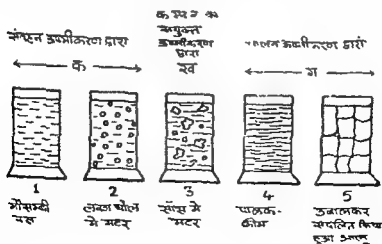 संवहन उष्मीकरण द्वारा
क
संयुक्त
उष्मीकरण
द्वारा
ख
चालन उष्मीकरण द्वारा
ग
1
मौसम्बी
रस
2
लवण घोल
में मटर
3
सॉस में
मटर
4
पालक-
क्रीम
5
उबालकर
हुआ आलू